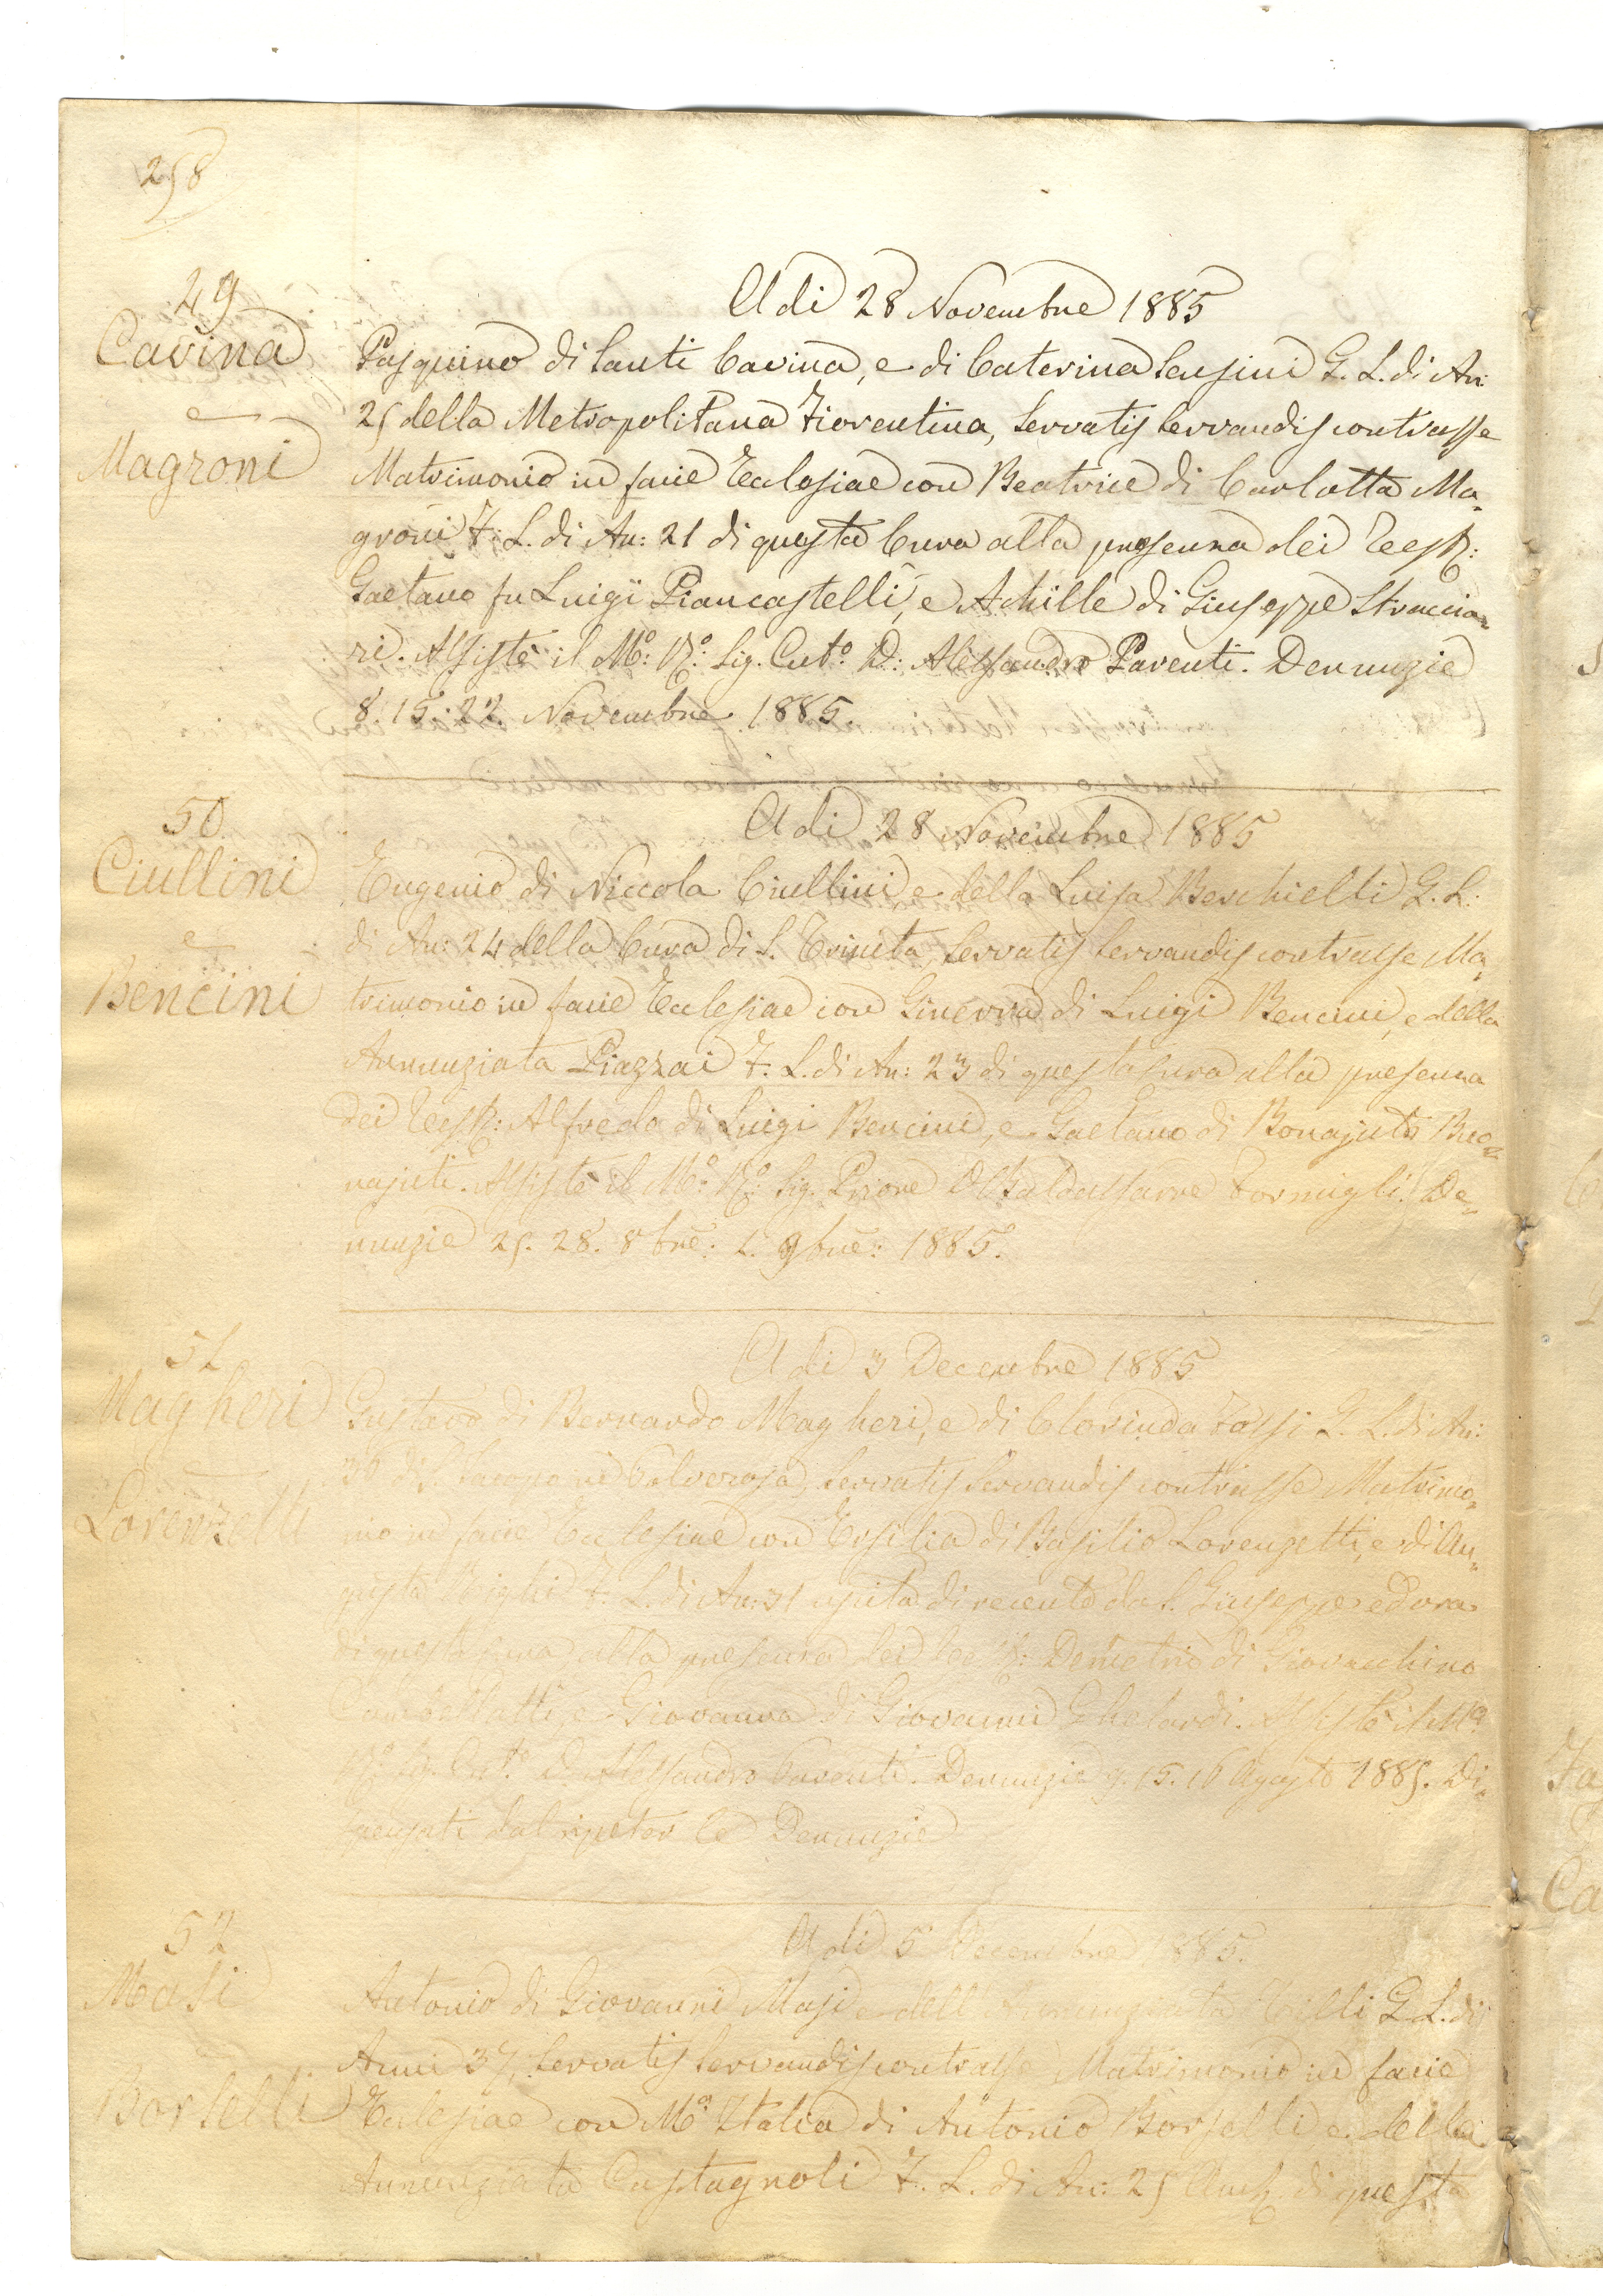 258
49
Cavina
e
Magroni
A di 28 Novembre 1885
Pasquino di Santi Cavina, e di Caterina Sansini G. L. di An:
25 della Metropolitana Fiorentina, Servatis Servandis contrasse
Matrimonio in facie Ecclesiae con Beatrice di Carlotta Ma-
groni F. L. di An: 21 di questa Cura alla presenza dei Testi:
Gaetano fu Luigi Piancastelli, e Achille di Giuseppe Straccia-
ri. Assistè il Mo: Ro: Sig. Cuto. D: Alessandro Parenti. Denunzie
8. 15. 22. Novembre 1885.
50
Ciullini
e
Bencini
A di 28 Novembre 1885
Eugenio di Niccola Ciullini, e della Luisa Beschielli G. L.
di An: 24 della Cura di S. Trinita, Servatis Servandis contrasse Ma-
trimonio in facie Ecclesiae con Ginevra di Luigi Bencini, e della
Annunziata Piazzai F. L. di An: 23 di questa Cura alla presenza
dei Testi: Alfredo di Luigi Bencini, e Gaetano di Bonajuto Buo-
najuti. Assistè il Mo: Ro: Sig. Priore Baldassarre Formigli. De-
nunzie 25. 28. 8bre: 1. 9bre: 1885.
51
Magheri
Lorenzetti
A di 3 Decembre 1885
Gustavo di Bernardo Magheri, e di Clorinda Fossi G. L. di An:
36 di S. Jacopo in Polverosa, Servatis Servandis contrasse Matrimo-
nio in facie Ecclesiae con Ersilia di Basilio Lorenzetti, e di Au-
gusta Righi F. L. di An: 31 uscita di recente da S. Giuseppe ed ora
di questa Cura alla presenza dei Testi: Demetrio di Giovacchino
e Giovanna di Giovanni Ghelardi. Assistè il Mo:
Ro: Sig. Cuto. D. Alessandro Parenti. Denunzie 9. 15. 16 Agosto 1885. Di-
spensati dal ripeter le Denunzie
52
Masi
Borselli
A di 5 Decembre 1885.
Antonio di Giovanni Masi e dell'Annunziata G. L. di
Anni 37, Servatis Servandis contrasse Matrimonio in facie
Ecclesiae con Ma. Italia di Antonio Borselli, e della
Annunziata Castagnoli F. L. di An: 25 di questa